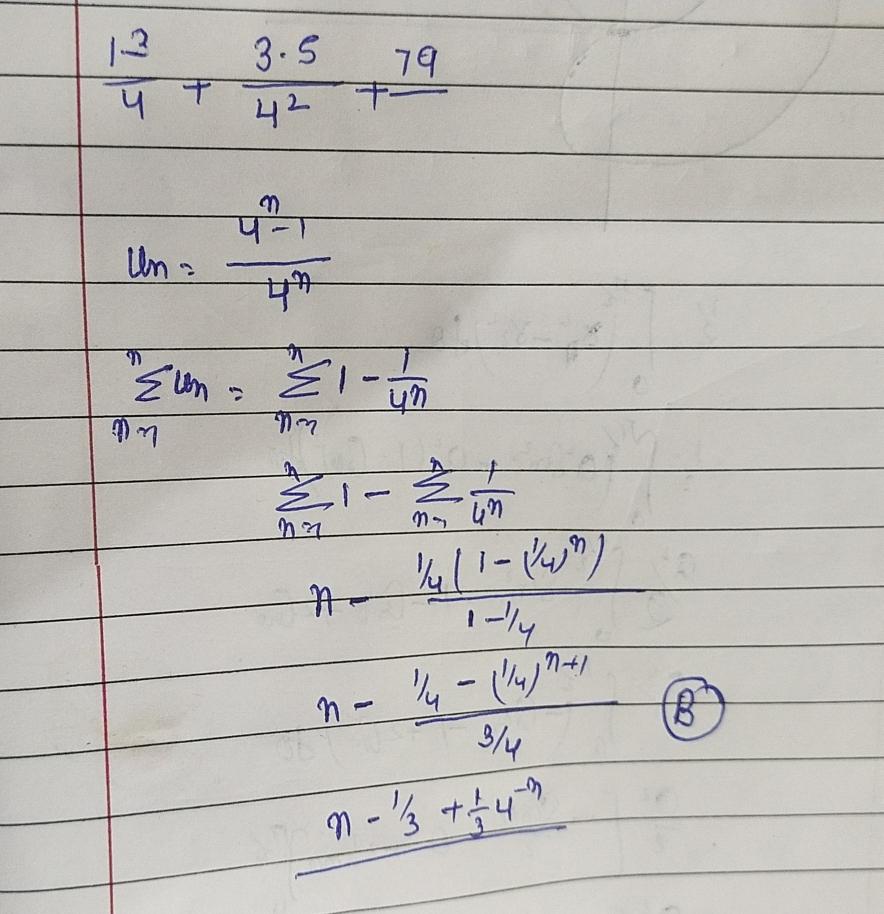 13/4 + 3·5/4² + 79/
Un = 4ⁿ-1/4ⁿ
ⁿΣUn = ⁿΣ1 - 1/4ⁿ
ⁿΣ1 - ⁿΣ1/4ⁿ
n - 1/4(1-(1/4)ⁿ)/1-1/4
n - 1/4 - (1/4)ⁿ⁺¹/3/4 B
n - 1/3 + 1/3 4⁻ⁿ